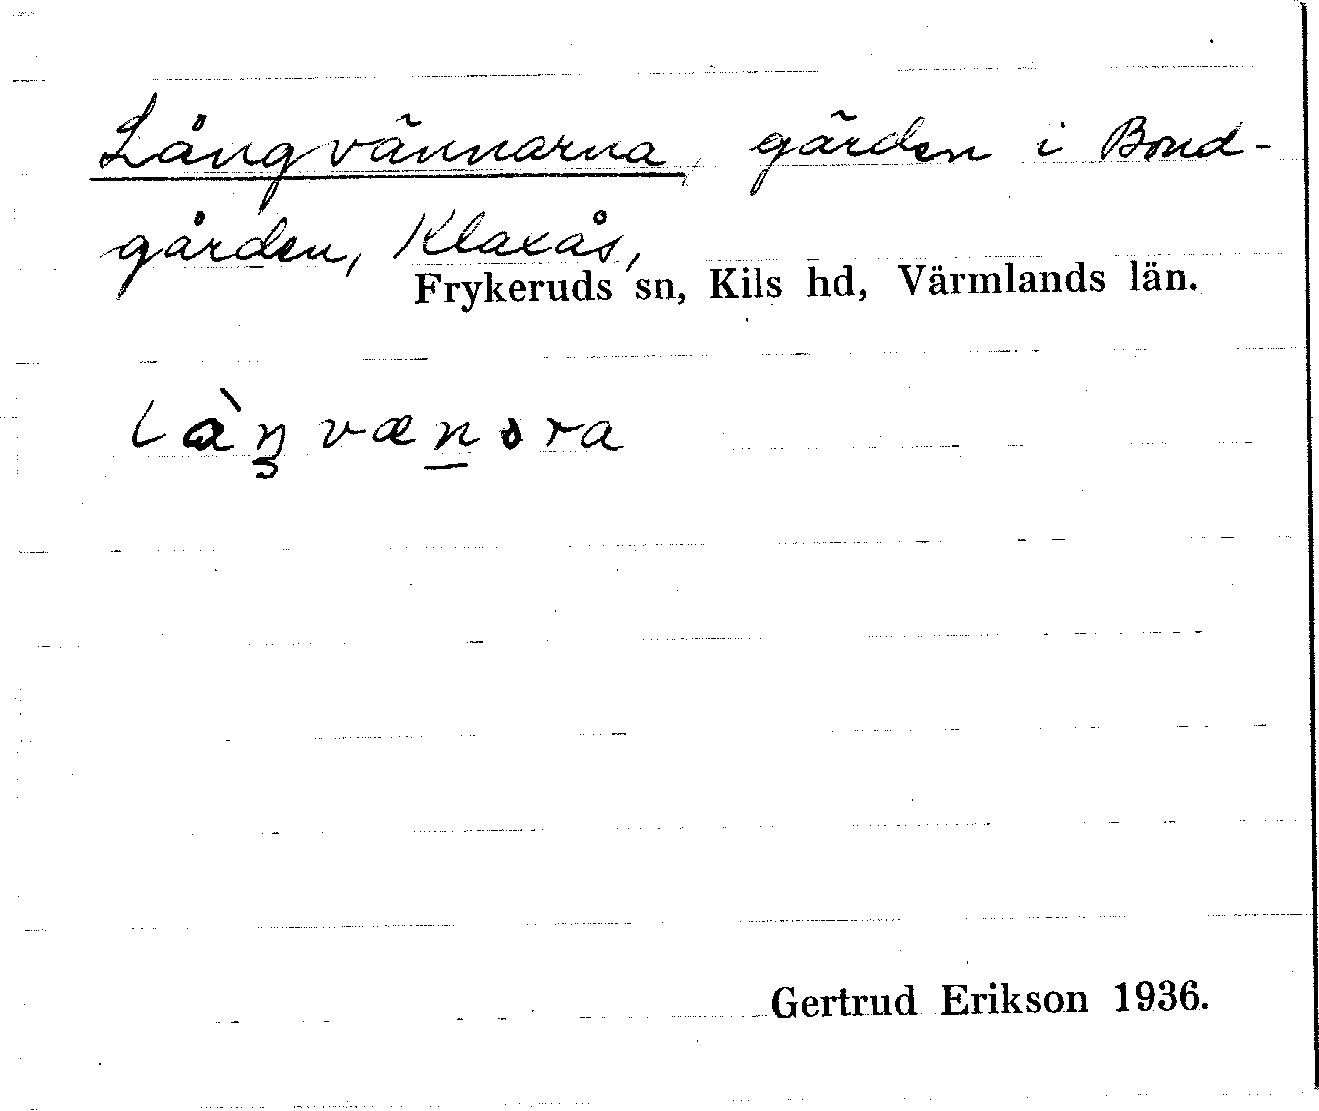 Långvännarna, gärden i Bond-
gården, Klaxås,
Frykeruds sn, Kils hd, Värmlands län.
Gertrud Erikson 1936.